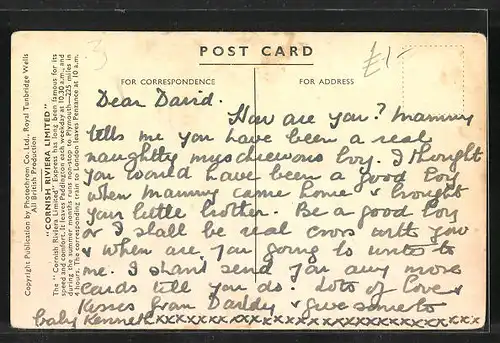 POST CARD
£1-
3
FOR CORRESPONDENCE
FOR ADDRESS
Dear David.
How are you? Mammy
tells me you have been a real
naughty mischievous boy. I thought
you would have been a good boy
when Mammy came home & brought
your little brother. Be a good boy
or I shall be real cross with you
& when are you going to write to
me. I shant send you any more
cards till you do. Lots of love &
Kisses from Daddy & give some to
baby Kenneth xxxxxxxxxxxxxxxxxxxxxxx
"CORNISH RIVIERA LIMITED"
The "Cornish Riviera Limited" Express has long been famous for its
speed and comfort. It leaves Paddington each weekday at 10.30 a.m., and
during the summer months runs non-stop to Plymouth—225 miles in
hours. The corresponding train to London leaves Penzance at 10 a.m.
Copyright Publication by Photochrom Co. Ltd., Royal Tunbridge Wells
All British Production